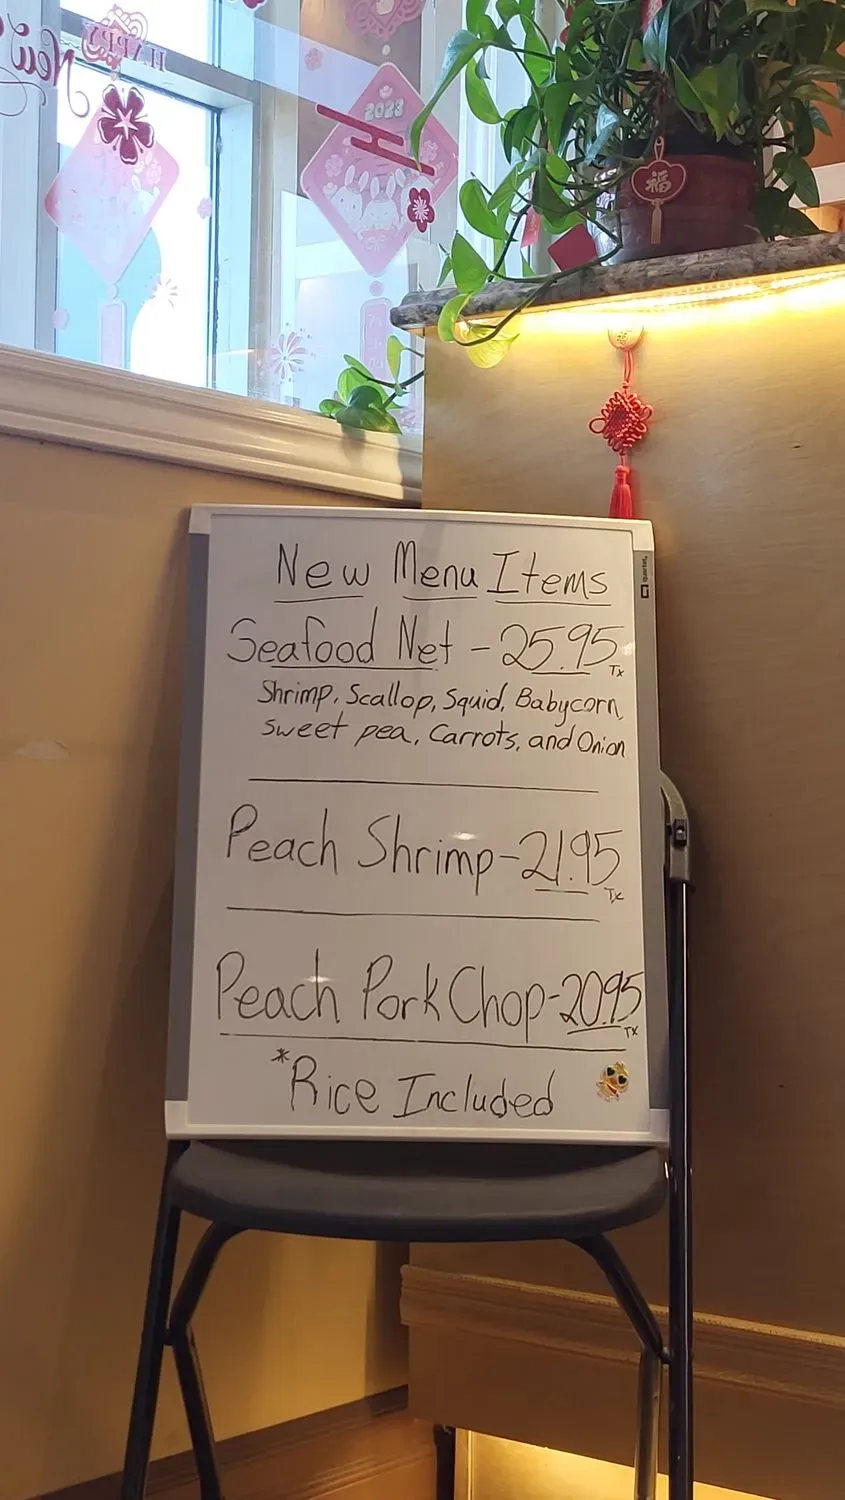 HAPPY
New
2023
福
New Menu Items
Seafood Net - 25.95 Tx
Shrimp, Scallop, Squid, Babycorn,
sweet pea, Carrots, and Onion
Peach Shrimp - 21.95 Tx
Peach Pork Chop - 20.95 Tx
*Rice Included